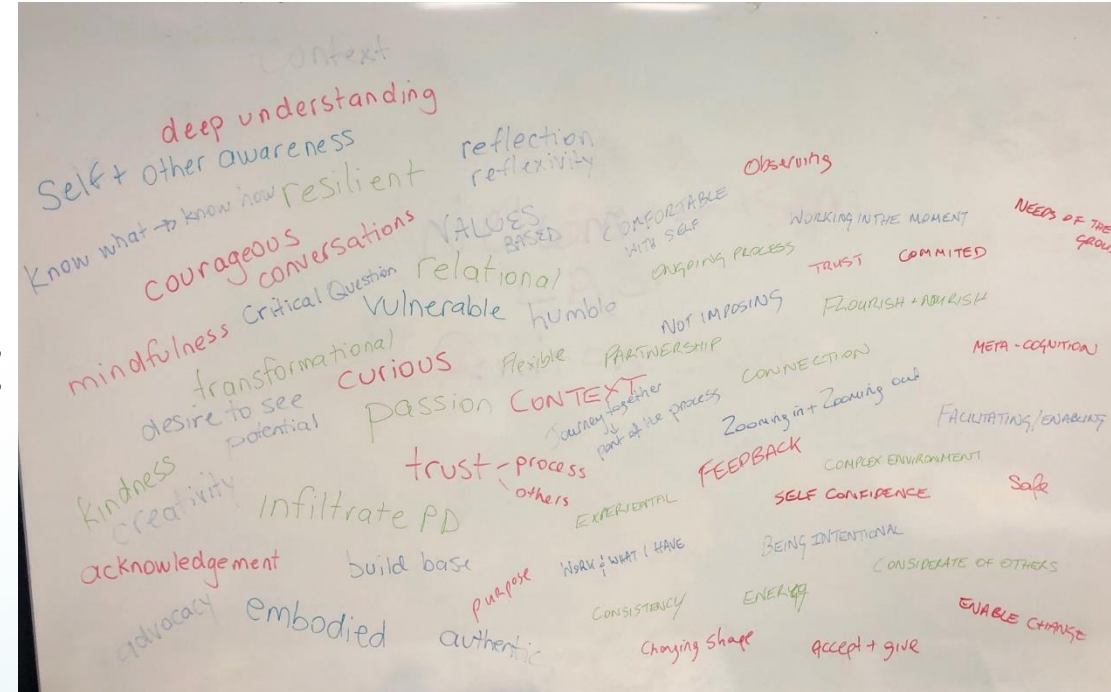 context
deep understanding
Self + other awareness
reflection
reflexivity
Observing
Know what → know how
resilient
courageous
conversations
VALUES
BASED
COMFORTABLE
WITH SELF
WORKING IN THE MOMENT
NEEDS OF THE
GROU
Critical Question
relational
ONGOING PROCESS
TRUST
COMMITED
mindfulness
Vulnerable
humble
NOT IMPOSING
FLOURISH + NOURISH
transformational
curious
flexible
PARTNERSHIP
CONNECTION
META-COGNITION
desire to see
potential
passion
CONTEXT
Journey together
↓
part of the process
Zooming in + Zooming out
FACILITATING/ENABLING
kindness
creativity
trust - process
others
FEEDBACK
COMPLEX ENVIRONMENT
Infiltrate PD
EXPERIENTAL
SELF CONFIDENCE
Safe
acknowledgement
build base
WORK WHAT I HAVE
BEING INTENTIONAL
CONSIDERATE OF OTHERS
advocacy
embodied
purpose
authentic
CONSISTENCY
ENERGY
ENABLE CHANGE
Changing shape
accept + give